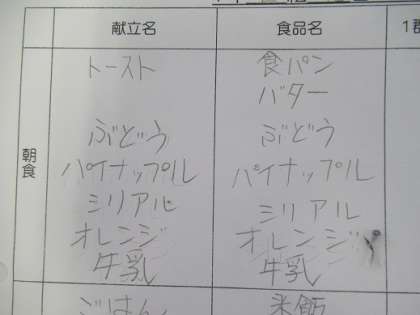 献立名 食品名 1群
朝食
トースト 食パン
バター
ぶどう ぶどう
パイナップル パイナップル
シリアル シリアル
オレンジ オレンジ
牛乳 牛乳
ごはん 米飯